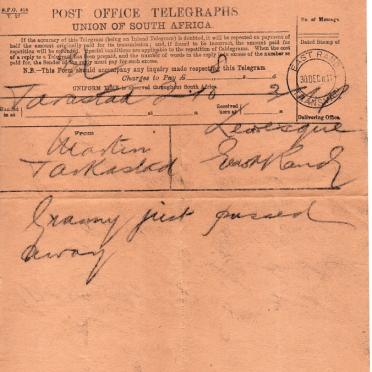 G.P.O. 414
T. 27
POST OFFICE TELEGRAPHS
UNION OF SOUTH AFRICA.
No. of Message.
If the accuracy of this Telegram (being an Inland Telegram) is doubted, it will be repeated on payment of
half the amount originally paid for its transmission; and, if found to be incorrect, the amount paid for
repetition will be refunded. Special conditions are applicable to the repetition of Cablegrams. When the cost
of a reply to a Telegram has been prepaid, and the number of words in the reply is in excess of the number so
paid for, the Sender of the reply must pay for such excess.
Dated Stamp of
N.B.—This Form should accompany any inquiry made respecting this Telegram
Charges to Pay
EAST RAND
TRANSVAAL
UNIFORM TIME is observed throughout South Africa
Handed in at
Received here at
Delivering Office.
From
Levesque
Martin
East Rand
Tarkastad
Granny just passed
away